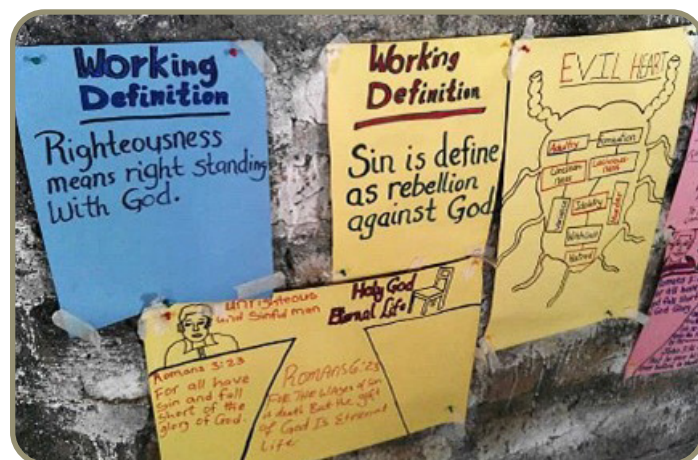 Working
Definition
Righteousness
means right standing
With God.
Working
Definition
Sin is define
as rebellion
against God
EVIL HEART
Adultry
Fornication
Unclean-
ness
Lascivious-
ness
Idolatry
Witchcraft
Hatred
Unrighteous
and Sinful man
Holy God
Eternal Life
Romans 3:23
For all have
Sin and fall
Short of the
glory of God.
ROMANS 6:23
FOR THE Wages of Sin
is death But the gift
of God Is Eternal
Life